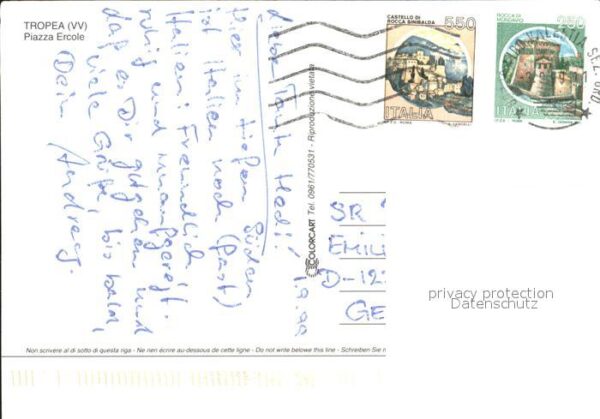 TROPEA (VV)
Piazza Ercole
Liebe Tante Hedi! 1.9.99
Hier im tiefen Süden
ist Italien noch (fast)
Italien! Freundlich
ruhig und
daß es Dir gut geht und
viele Grüße bis bald,
Dein Andreas.
COLORCART Tel. 0961/770531 - Riproduzione vietata
CASTELLO DI
ROCCA SINIBALDA
550
ITALIA
ROCCA DI
MONDAVIO
250
ITALIA
SR
EMILI
D-122
GE
privacy protection
Datenschutz
Non scrivere al di sotto di questa riga - Ne rien écrire au-dessous de cette ligne - Do not write below this line - Schreiben Sie